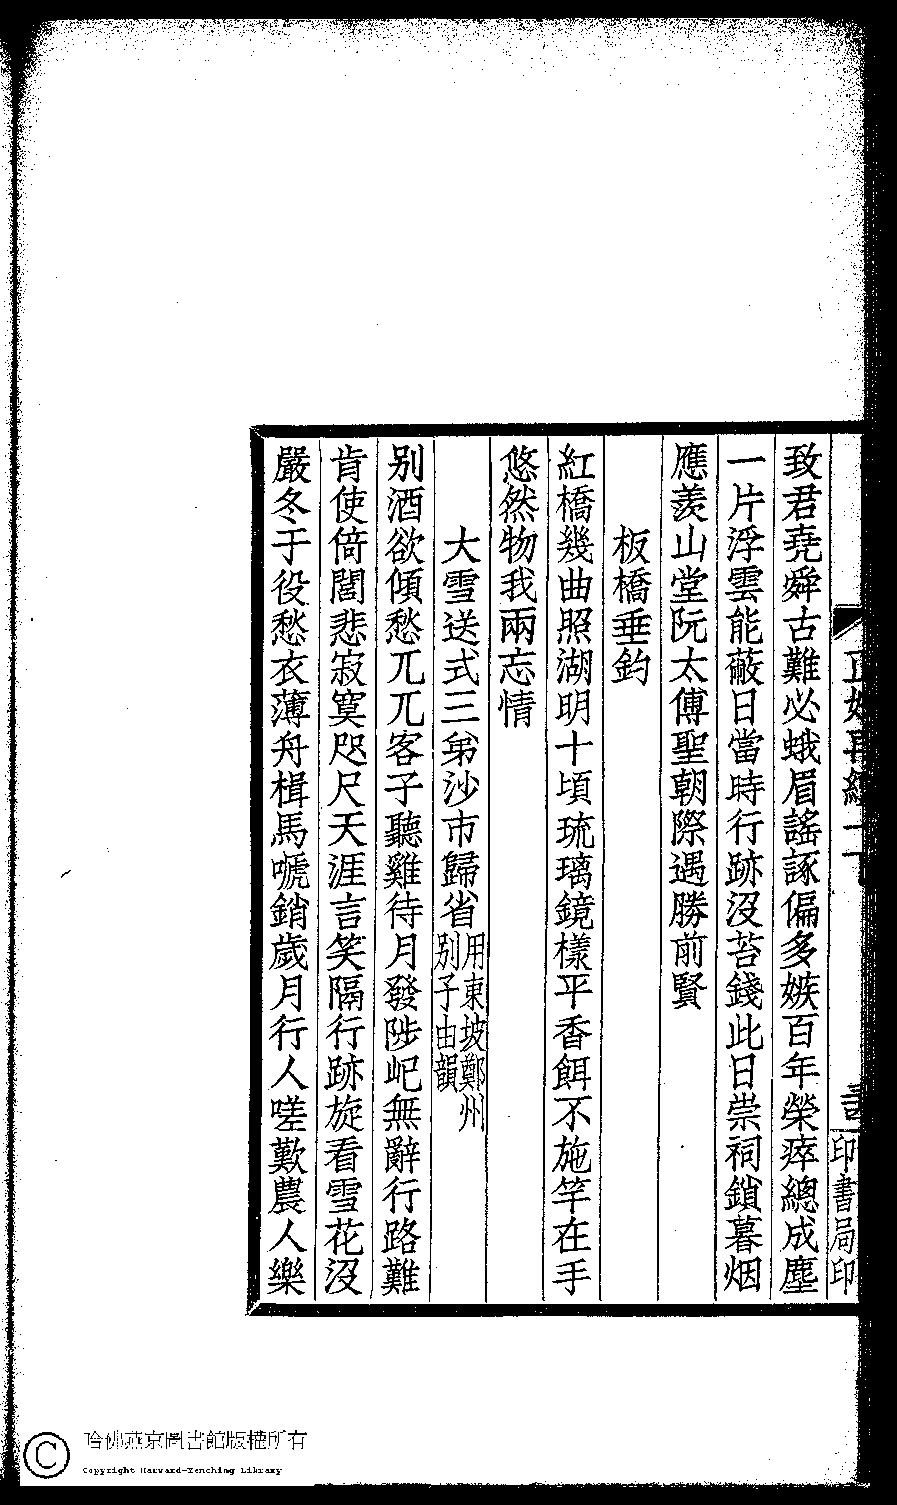 致君堯舜古難必蛾眉謠諑偏多嫉百年榮瘁總成塵
一片浮雲能蔽日當時行跡沒苔錢此日崇祠鎖暮烟
應羨山堂阮太傅聖朝際遇勝前賢
板橋垂釣
紅橋幾曲照湖明十頃琉璃鏡樣平香餌不施竿在手
悠然物我兩忘情
大雪送式三弟沙市歸省用東坡鄭州別子由韻
别酒欲傾愁兀兀客子聽雞待月發陟屺無辭行路難
肯使倚閭悲寂寞咫尺天涯言笑隔行跡旋看雪花沒
嚴冬于役愁衣薄舟楫馬嗁銷歲月行人嗟歎農人樂
印書局印
哈佛燕京圖書館版權所有
Copyright Harvard-Yenching Library